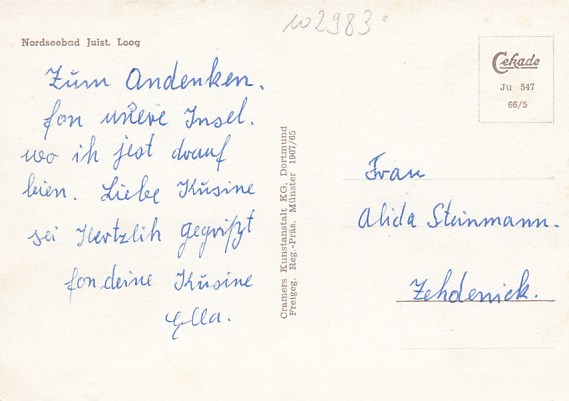 w 2983
Nordseebad Juist. Loog
Cekade
Ju 547
66/5
Zum Andenken.
fon unsere Insel.
wo ih jest drauf
bien. Liebe Kusine
sei Hertzlih gegrüßt
fon deine Kusine
Ella.
Cramers Kunstanstalt KG, Dortmund
Freigeg. Reg.-Präs. Münster 1907/65
Frau
Alida Steinmann.
Zehdenick.